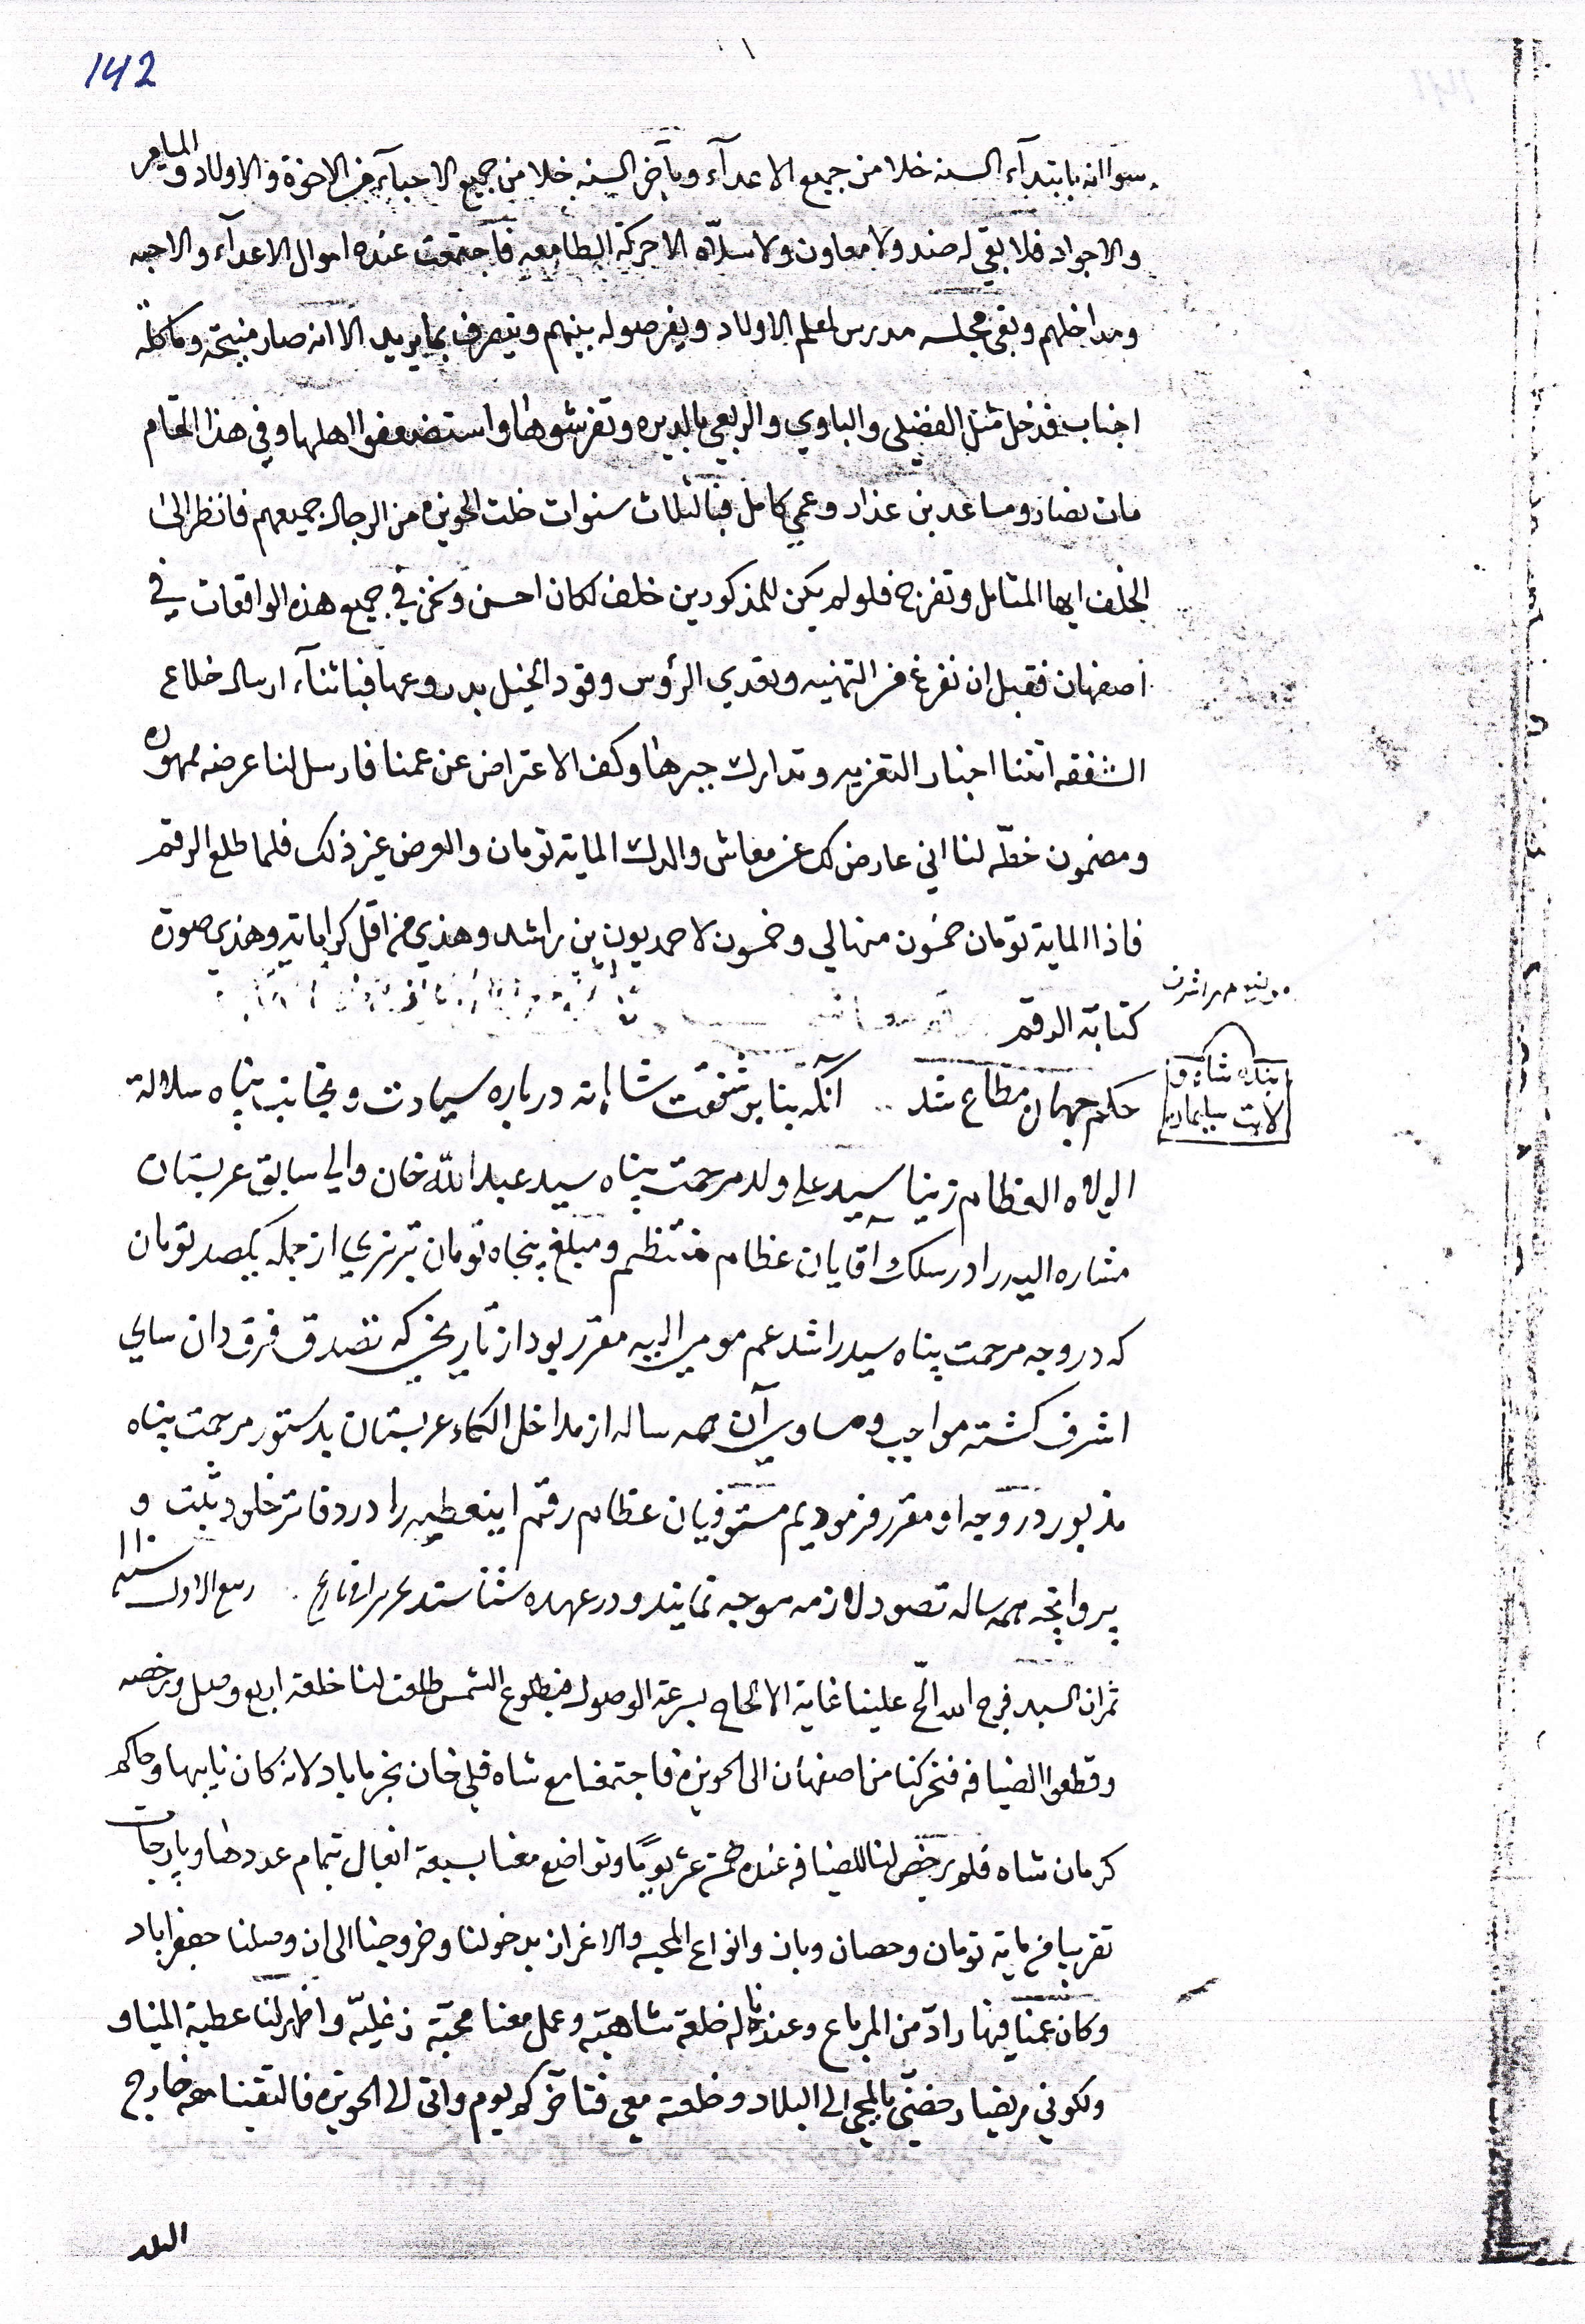 142
سوا انه بابتدآء السنه خلا من جميع الاعدآء وبآخر السنه خلا من جميع الاحبآء من الاخوة والاولاد و
والاجواد فلا بقي له ضد ولا معاون ولا سلاّه الا حركة الطامعه فاجتمعت عنده اموال الاعدآء والاحبه
ومداخلهم وبقى مجلسه مدرس لعلم الاولاد ويفرصوله بينهم ويتصرف بما يريد الا انه صار منيحة وماكلة
اجناب فدخل مثل الفضيلي والباوي والربعي بالديره وتفرشوها واستضعفوا اهلها وفي هذا العام
مات نصار ومساعد بن عذار وعمي كامل فبالثلاث سنوات خلت الحويزه من الرجال جميعهم فانظر الى
الخلف ايها المتامل وتفرج فلو لم يكن للمذكورين خلف لكان احسن ونحن في جميع هذه الواقعات في
اصفهان فقبل ان نفرغ من التهنيه وتعدي الرؤس وقود الخيل بدروعها فباثنآء ارسال خلاع
الشفقه اتتنا اخبار التعزيه وتدارك جبرها وكف الاعتراض عن عمنا فارسل لنا عرضه ممهوره
ومضمون خطّه لنا اني عارض لك عن معاش والدك الماية تومان والعرض غير ذلك فلما طلع الرقم
فاذا الماية تومان خمسون منها لي وخمسون لاحمد بن راشد وهذي من اقل كراماته وهذي صورة
كتابة الرقم
بنده شاه و
لايت سليمان
حكم جهان مطاع شد .. آنكه بنابر شفقت شاهانه درباره سيادت ونجابت پناه سلالة
الولاه العظام زينا سيد علي ولد مرحمت پناه سيد عبد الله خان والي سابق عربستان
مشاره اليه را در سلك آقايان عظام منتظم ومبلغ پنجاه تومان تبريزي از جمله يكصد تومان
كه در وجه مرحمت پناه سيد راشد عم مومى اليه مقرر بود از تاريخي كه تصدق فرق دان ساي
اشرف گشته مواجب ومساوي آن همه ساله از مداخل الكاء عربستان بدستور مرحمت پناه
مذبور در وجه او مقرر فرموديم مستوفيان عظام رقم اين عطيه را در دفاتر خلود ثبت و
پروانچه همه ساله تصور لازمه موجه نمايند ودر عهده شناسند تحريرا في تاريخ ربيع الاول سنه ١١٠
ثم ان السيد فرج الله الحّ علينا غاية الالحاح بسرعة الوصول فبطلوع الشمس طلعت لنا خلعة اربع وصل ورخصه
وقطعوا الضيافه فتحركنا من اصفهان الى الحويزه فاجتمعنا مع شاه قلي خان بخرماباد لانه كان نايبها وحاكم
كرمان شاه فلم يرخص لنا للضيافه عنده خمسة عشر يومًا وتواضع معنا بسبعة ابغال بتمام عددها وپارچات
تقريبا من ماية تومان وحصان وباز وانواع المحبه والاعزاز بدخولنا وخروجنا الى ان وصلنا جعفراباد
وكان عمنا فيها رادّ من المرباع وعندنا له خلعة شاهيّه وعمل معنا محبّة زغليّه واظهر لنا عطية الميناو
ولكوني مريضا رخصنّي بالمجي الى البلاد وخلعته معي فتاخر كم يوم واتى الى الحويزه فالتقينا معه خارج
البلد